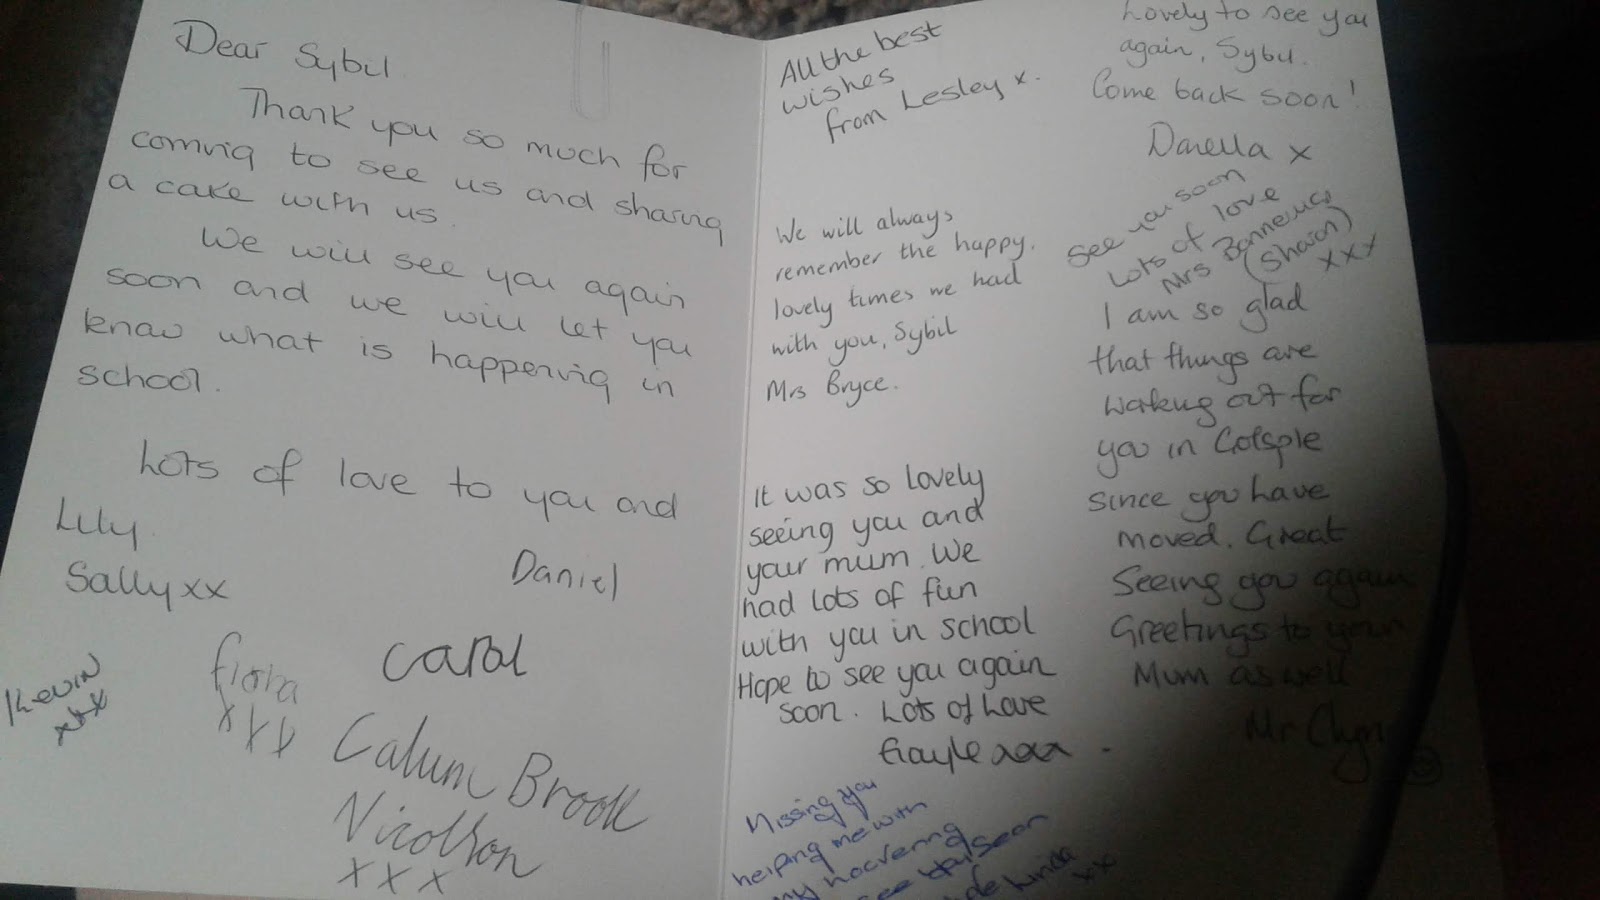 Dear Sybil
Thank you so much for
coming to see us and sharing
a cake with us.
We will see you again
soon and we will let you
know what is happening in
school.
Lots of love to you and
Lily
Sally xx
Daniel
Kevin
xxx
fiona
xxx
carol
Calum Brook
Nicolson
xxx
All the best
wishes
from Lesley x.
We will always
remember the happy,
lovely times we had
with you, Sybil
Mrs Bryce.
It was so lovely
seeing you and
your mum. We
had lots of fun
with you in school
Hope to see you again
soon. Lots of Love
Gayle xxx
Missing you
helping me with
my hoovering
see soon
Linda
xx
Lovely to see you
again, Sybil.
Come back soon!
Danella x
See you soon
Lots of love
Mrs
(Sharon)
xxx
I am so glad
that things are
working out for
you in Golspie
since you have
moved. Great
Seeing you again
Greetings to your
Mum as well
Mr